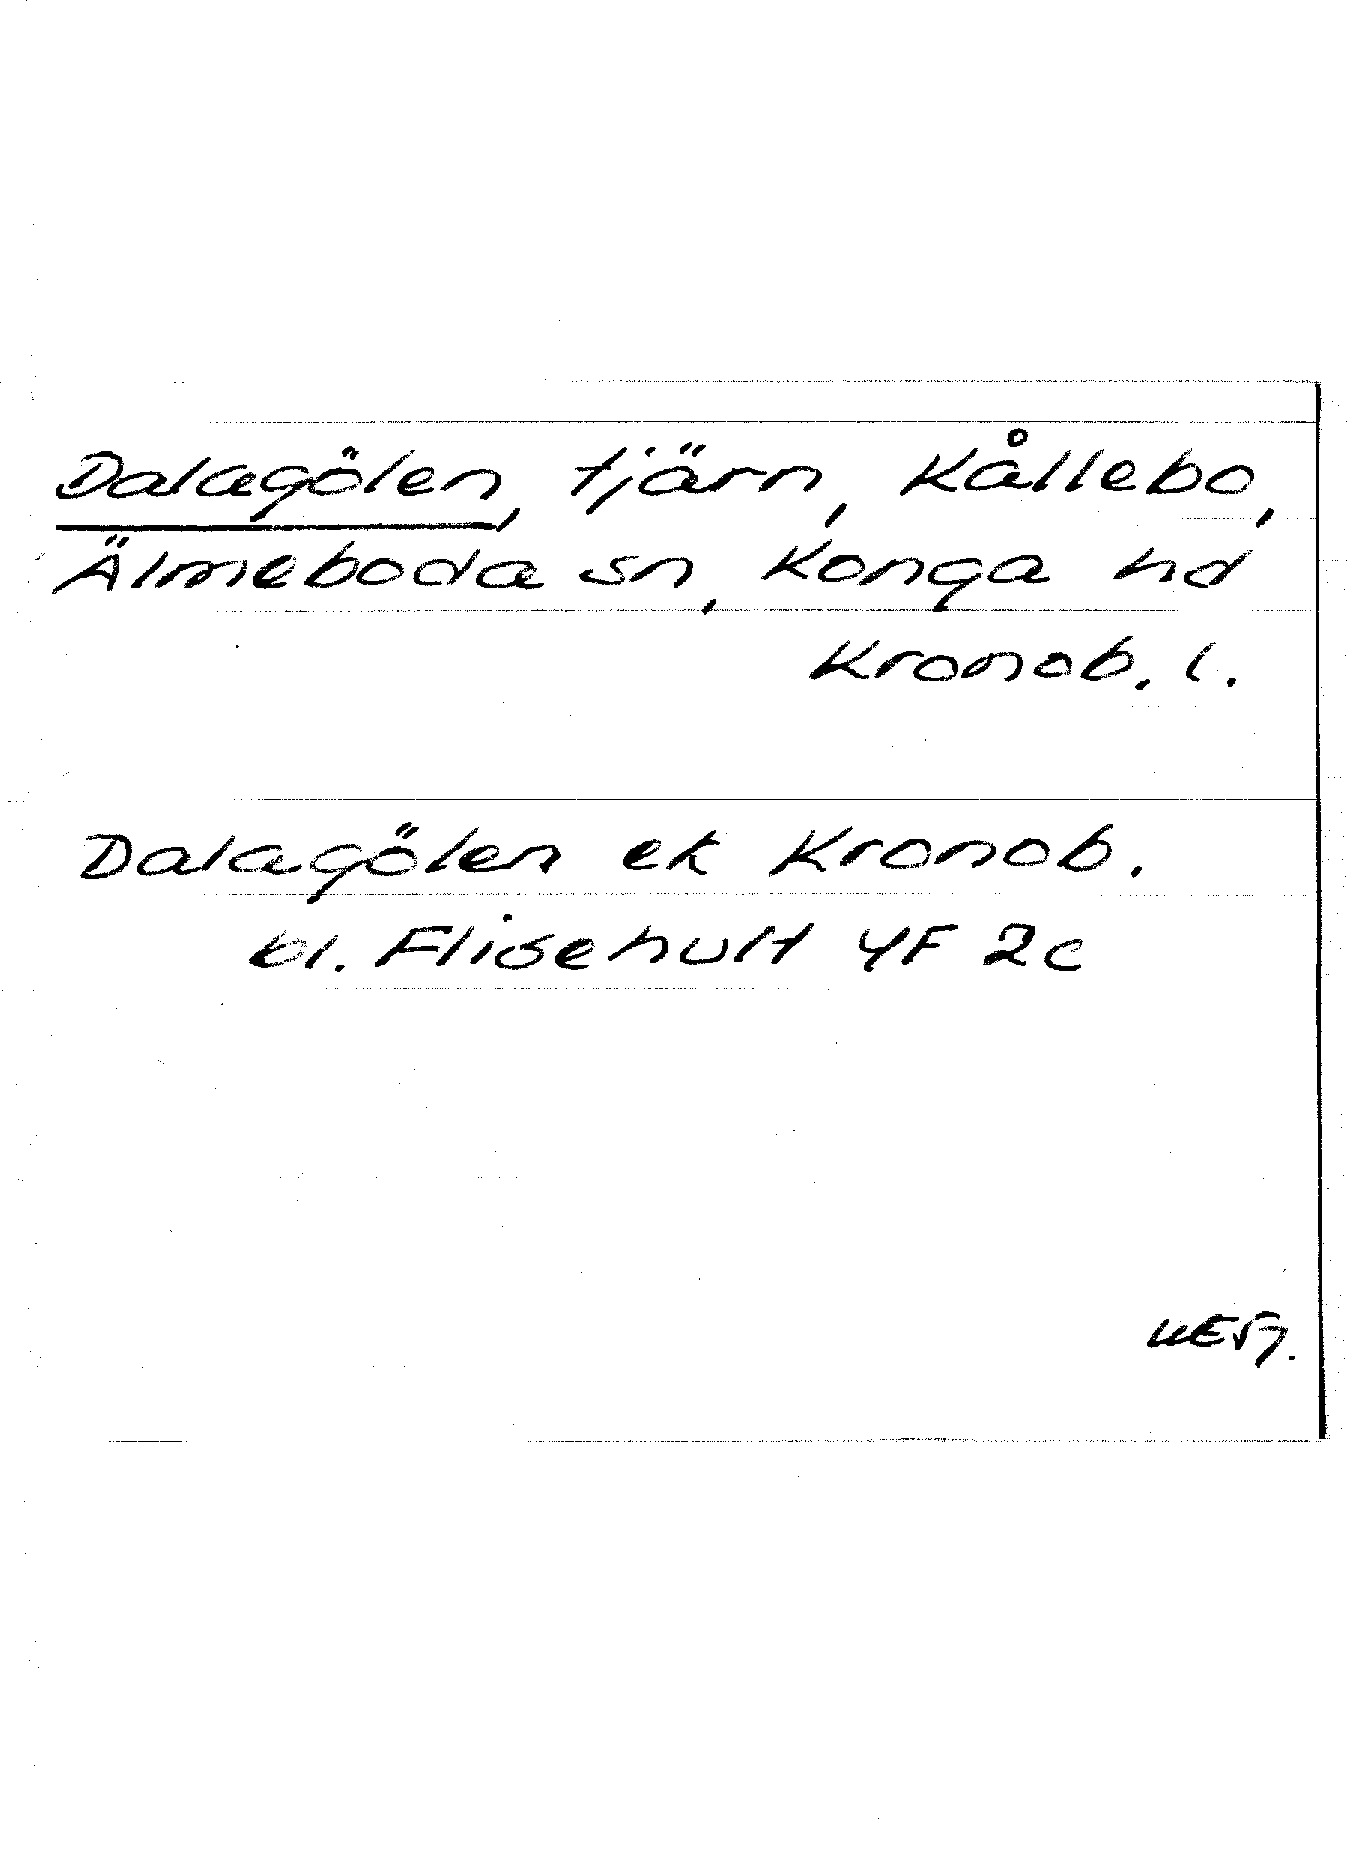 Dalagölen, tjärn, Kållebo,
Älmeboda sn, Konga hd
Kronob. l.
Dalagölen ek Kronob.
bl. Flisehult 4F 2c